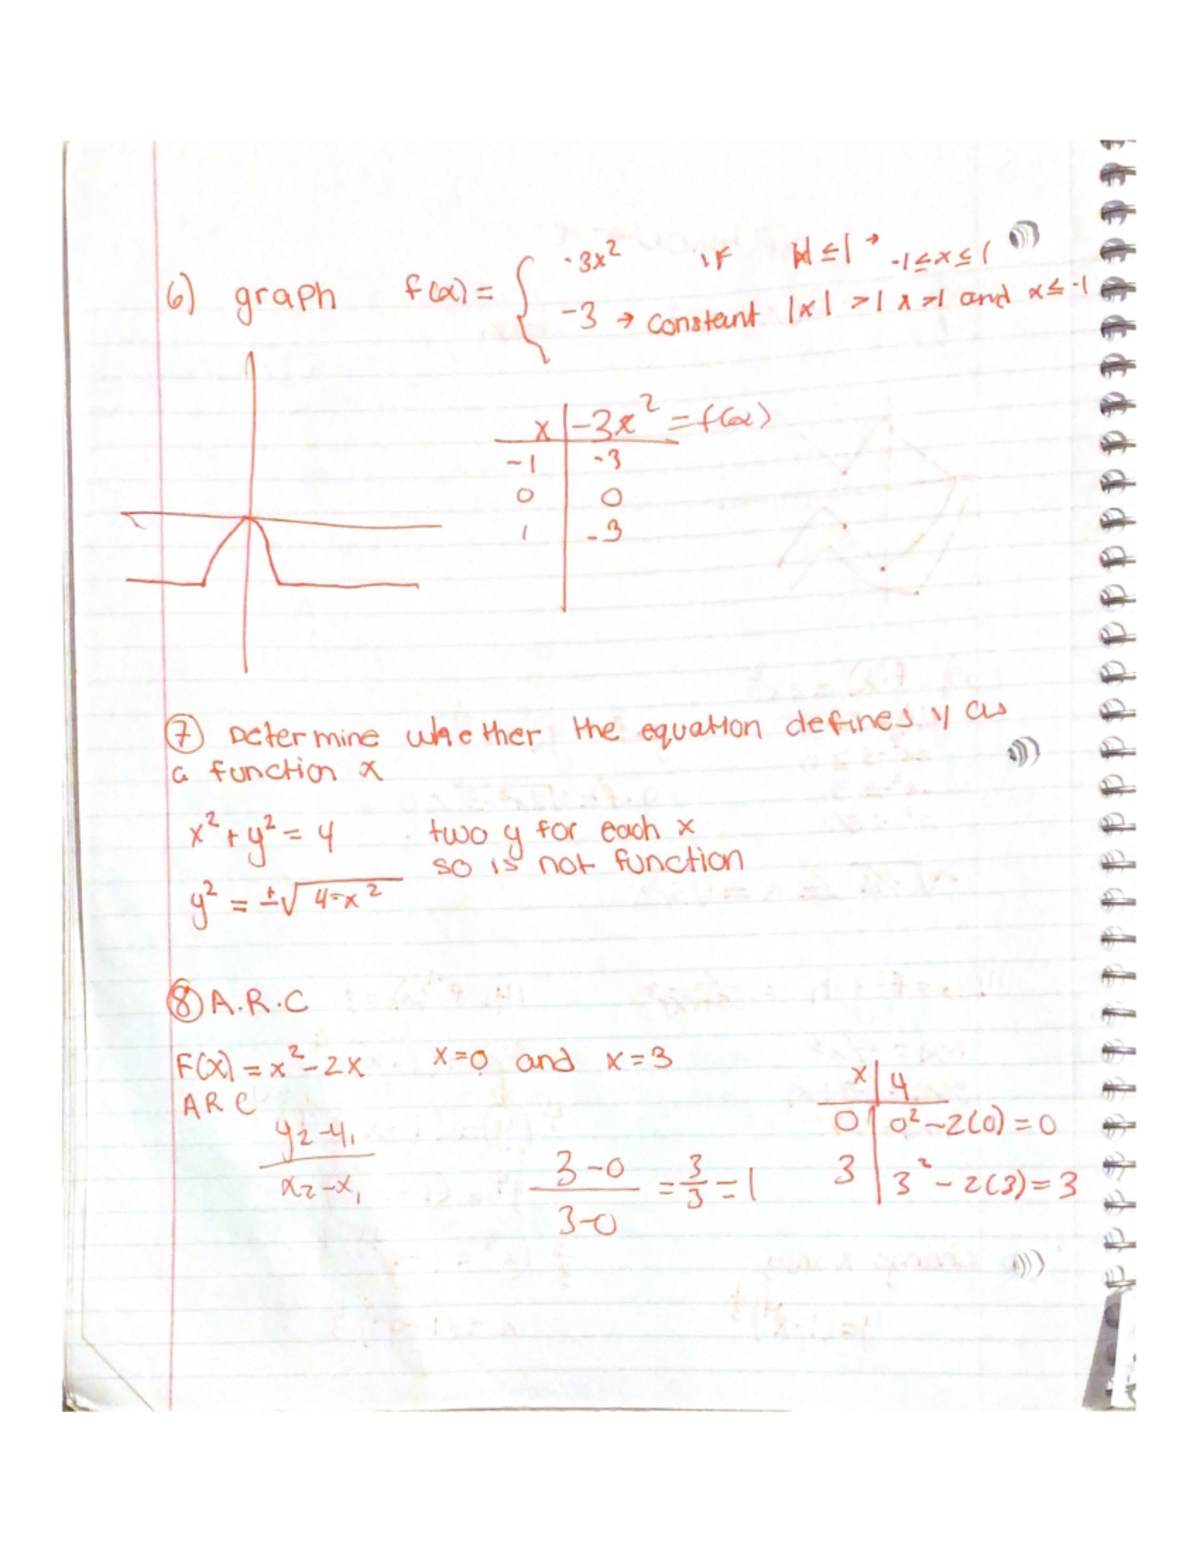 6) graph f(x) = { -3x² if |x| ≤ 1 → -1 ≤ x ≤ 1
-3 → constant |x| > 1 x > 1 and x ≤ -1
x | -3x² = f(x)
-1 | -3
0 | 0
1 | -3
⑦ Determine whether the equation defines y as
a function x
x² + y² = 4 two y for each x
so is not function
y² = ±√4-x²
⑧ A.R.C
F(x) = x² - 2x x=0 and x=3
ARC
y₂-y₁
x₂-x₁
3-0 = 3 = 1
3-0 3
x | y
0 | 0² - 2(0) = 0
3 | 3² - 2(3) = 3